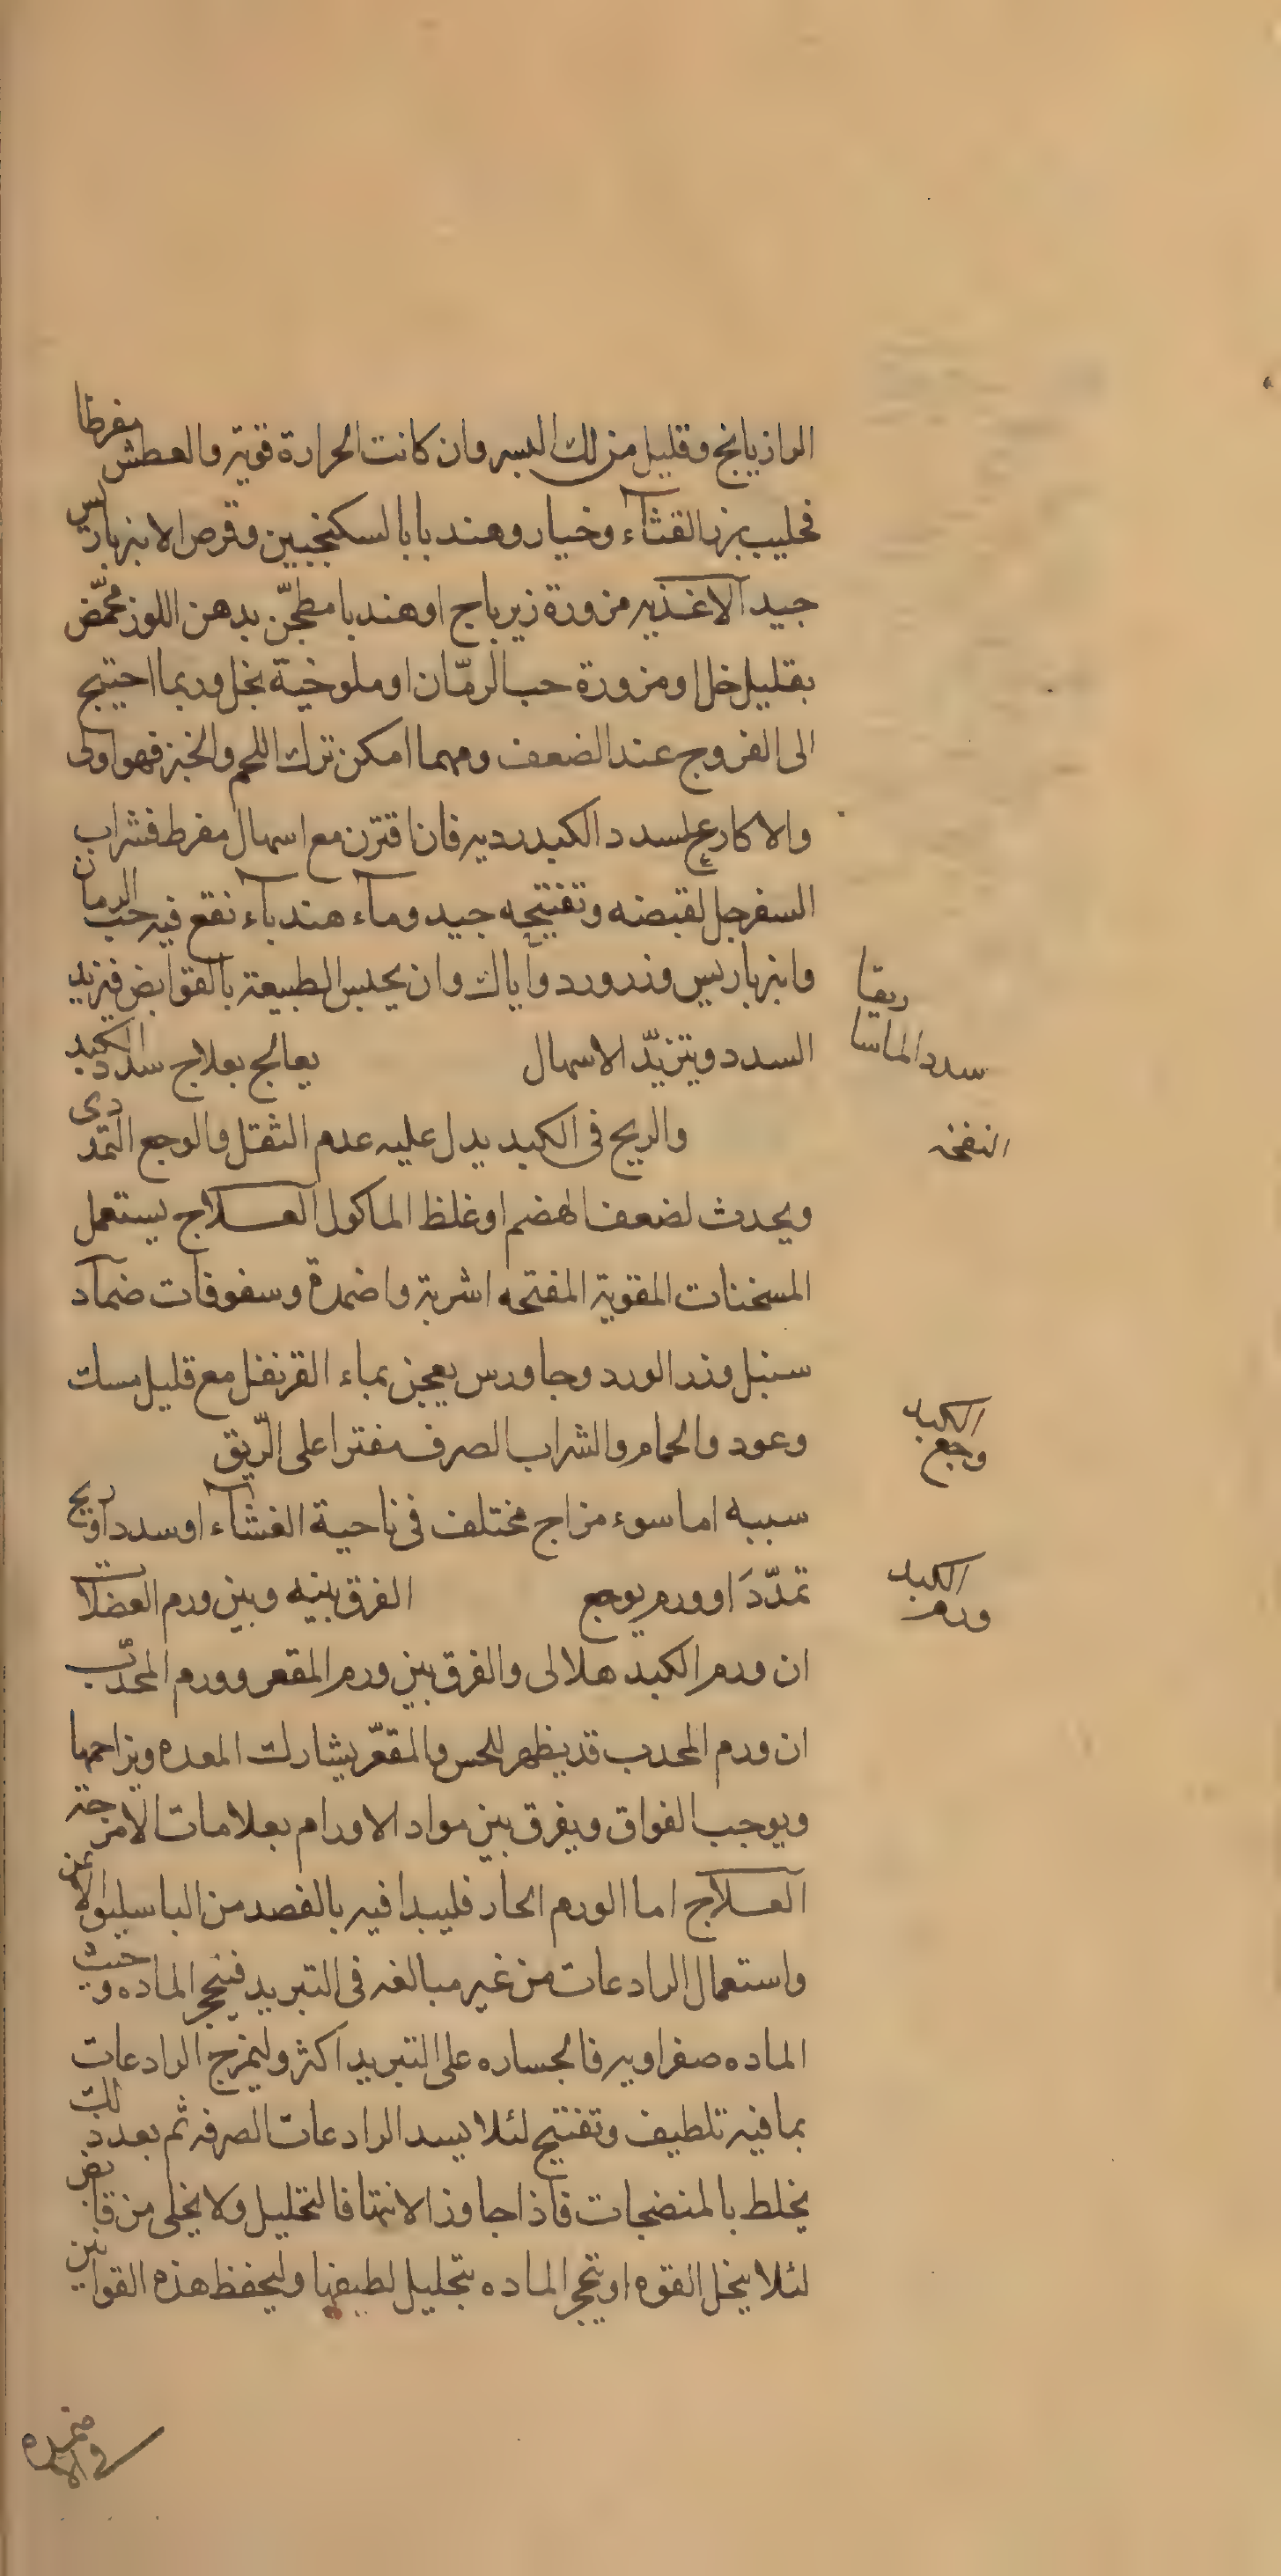 الرازيانج وقليل من لك البسر وان كانت الحرارة قوية والعطش مفرطا
فحليب بزر القثآء وخيار وهندبا بالسكنجبين وقرص الانبرباريس
جيد الاغذيه مزورة زيرباج او هندبا مطجّن بدهن اللوز محمّض
بقليل خل او مزورة حب الرمّان او ملوخية بخل وربما احتيج
الى الفروج عند الضعف ومهما امكن ترك اللحم والخبز فهو اولى
والاكارع لسدد الكبد رديه فان اقترن مع اسهال مفرط فشراب
السفرجل لقبضه وتفتيحه جيد ومآء هندبآء نقع فيه حب الرمان
وانبرباريس وزرورد واياك وان يحبس الطبيعة بالقوابض فتزيد
السدد ويتزيّد الاسهال يعالج بعلاج سدد الكبد
سدد الماسا
ريقا
النفخه
والريح فى الكبد يدل عليه عدم الثقل والوجع التمددى
ويحدث لضعف الهضم او غلظ الماكول العلاج يستعمل
المسخنات المقوية المفتحه اشربة واضمدة وسفوفات ضمآد
سنبل وزر الورد وجاورس يعجن بماء القرنفل مع قليل مسك
وعود والحمام والشراب الصرف مفترا على الرّيق
وجع
الكبد
سببه اما سوء مزاج مختلف فى ناحية الغشآء او سدد او ريح
تمدّدَ او ورم يوجع الفرق بينه وبين ورم العضلات
ورم
الكبد
ان ورم الكبد هلالى والفرق بين ورم المقعر وورم المحدّب
ان ورم المحدب قد يظهر للحس والمقعّر يشارك المعده ويزاحمها
ويوجب الفواق ويفرق بين مواد الاورام بعلامات الامزجة
العلاج اما الورم الحار فليبدا فيه بالفصد من الباسليق الايمن
واستعمال الرادعات من غير مبالغه فى التبريد فيتحجر الماده وحيث
الماده صفراويه فالجساره على التبريد اكثر وليمزج الرادعات
بما فيه تلطيف وتفتيح لئلا يسد الرادعات الصرفه ثم بعد ذلك
يخلط بالمنضجات فاذا جاوز الانتها فالتحليل ولا يخلى من قابض
لئلا ينحل القوه او يتحجر الماده بتحليل لطيفها وليحفظ هذه القوانين
والاضمده